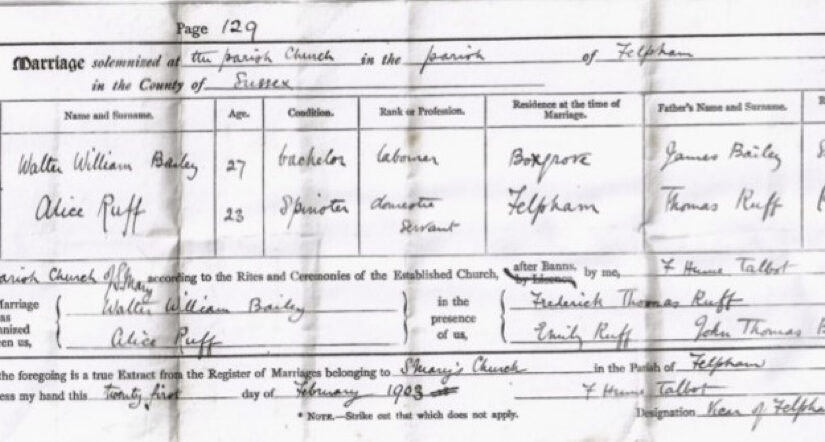 Page 129
Marriage solemnized at the parish Church in the parish of Felpham
in the County of Sussex
Name and Surname. Age. Condition. Rank or Profession. Residence at the time of Marriage. Father's Name and Surname. R
Walter William Bailey 27 bachelor labourer Boxgrove James Bailey
Alice Ruff 23 Spinster domestic servant Felpham Thomas Ruff
arish Church of S. Mary according to the Rites and Ceremonies of the Established Church, after Banns, by Licence, by me, F Hume Talbot
Marriage as nnized en us, Walter William Bailey in the presence of us, Frederick Thomas Ruff
Alice Ruff Emily Ruff John Thomas B
the foregoing is a true Extract from the Register of Marriages belonging to S Mary's Church in the Parish of Felpham
ess my hand this twenty first day of February 1903 F Hume Talbot
* NOTE.—Strike out that which does not apply. Designation Vicar of Felpha